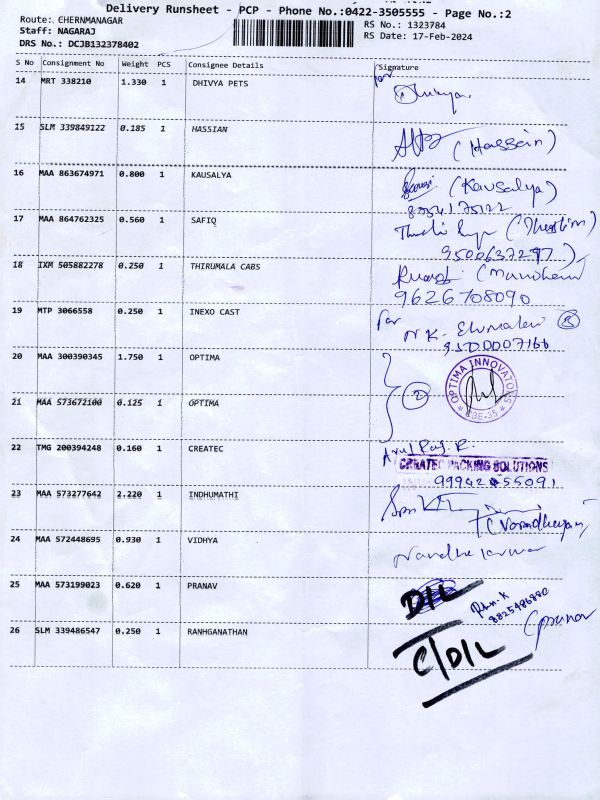 Delivery Runsheet - PCP - Phone No.:0422-3505555 - Page No.:2
Route: CHERNMANAGAR
RS No.: 1323784
Staff: NAGARAJ
RS Date: 17-Feb-2024
DRS No.: DCJB132378402
S No Consignment No Weight PCS Consignee Details Signature
14 MRT 338210 1.330 1 DHIVYA PETS for
15 SLM 339849122 0.185 1 HASSIAN (Hassein)
16 MAA 863674971 0.800 1 KAUSALYA (Kausalya)
17 MAA 864762325 0.560 1 SAFIQ
9500637297
18 IXM 505882278 0.250 1 THIRUMALA CABS
9626708090
19 MTP 3066558 0.250 1 INEXO CAST for
9500007166
20 MAA 300390345 1.750 1 OPTIMA 2
OPTIMA INNOVATORS
* CBE-35 *
21 MAA 573672100 0.125 1 OPTIMA
22 TMG 200394248 0.160 1 CREATEC Arul Raj. R.
CREATEC PACKING SOLUTIONS
99942 55091
23 MAA 573277642 2.220 1 INDHUMATHI
24 MAA 572448695 0.930 1 VIDHYA
25 MAA 573199023 0.620 1 PRANAV D/L
26 SLM 339486547 0.250 1 RANHGANATHAN C/D/L